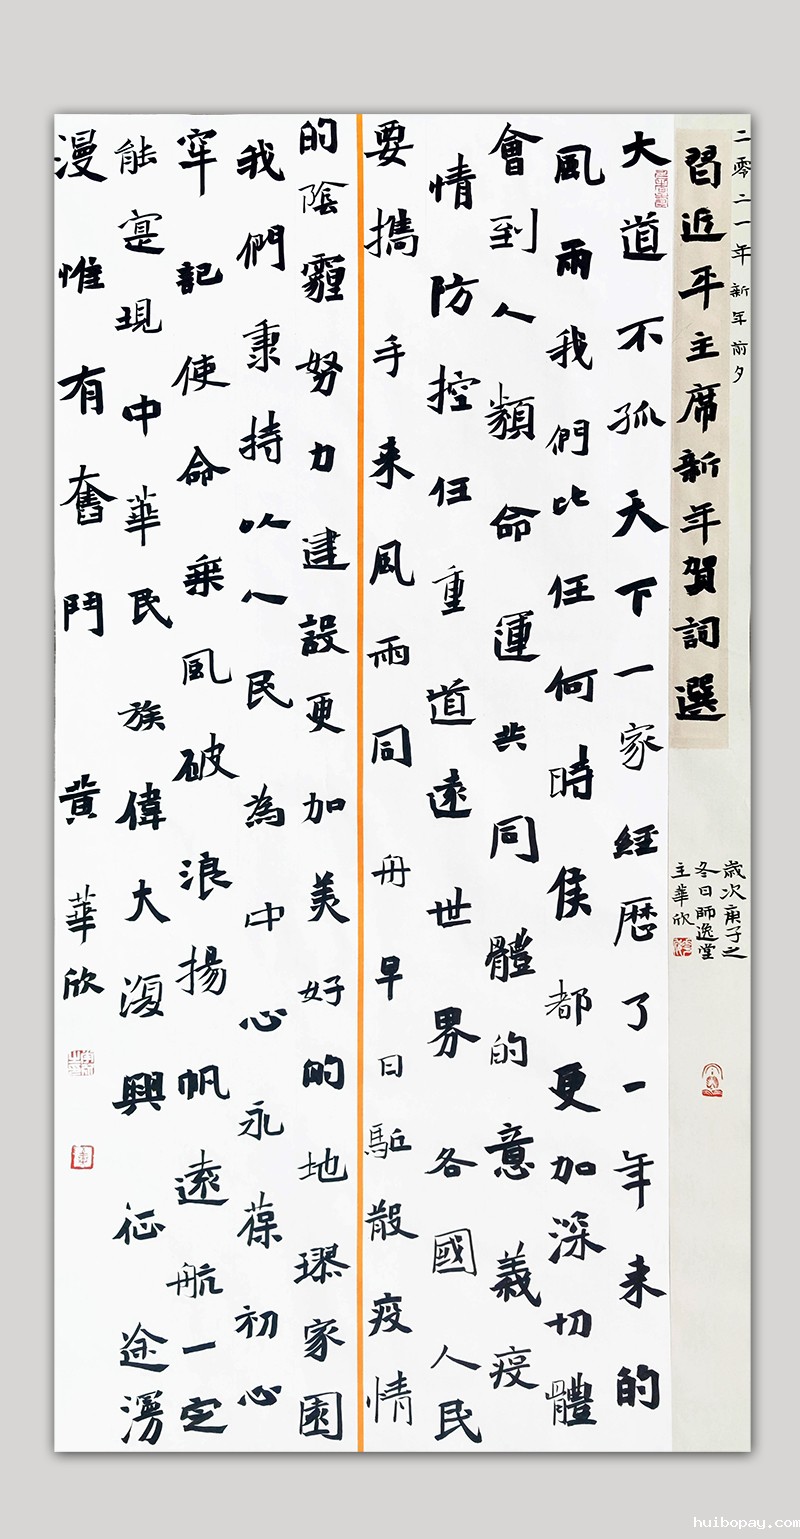 二零二一年新年前夕
習近平主席新年賀詞選
歲次庚子之
冬日師逸堂
主華欣
大道不孤天下一家經歷了一年來的
風雨我們比任何時侯都更加深切體
會到人類命運共同體的意義疫
情防控任重道遠世界各國人民
要攜手來風雨同舟早日驅散疫情
的陰霾努力建設更加美好的地球家園
我們秉持以人民為中心永葆初心
牢記使命乘風破浪揚帆遠航一定
能實現中華民族偉大復興征途漫
漫惟有奮鬥 黄華欣
huibopay.com